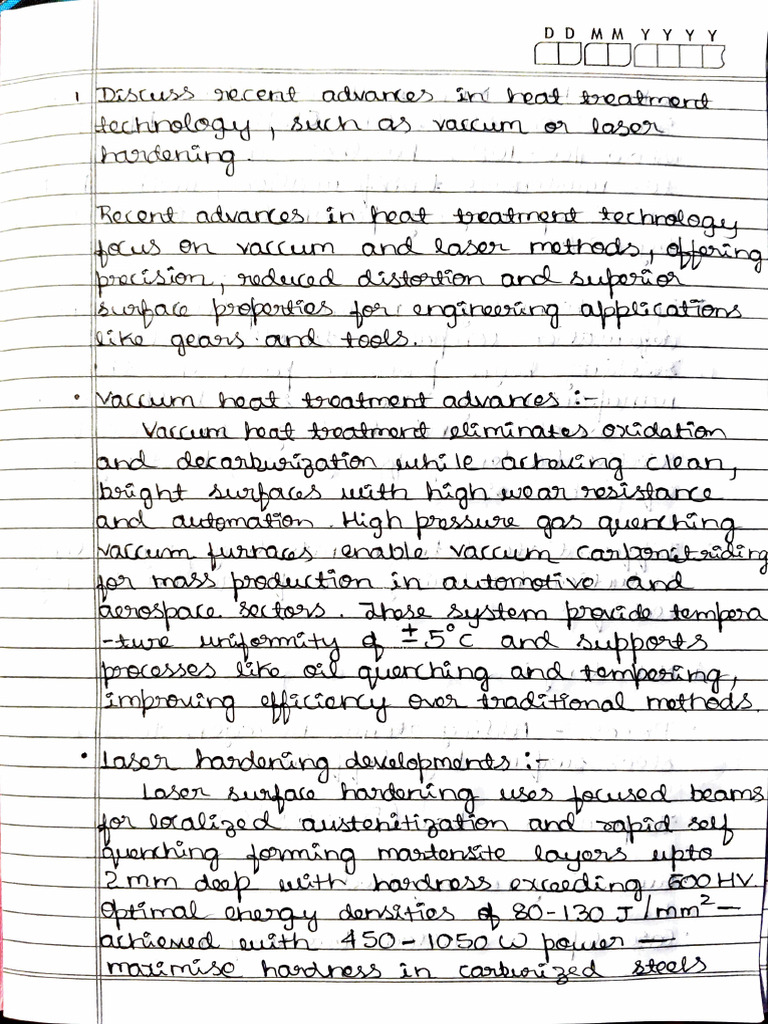 D D M M Y Y Y Y
1 Discuss recent advances in heat treatment
technology, such as vaccum or laser
hardening.
Recent advances in heat treatment technology
focus on vaccum and laser methods, offering
precision, reduced distortion and superior
surface properties for engineering applications
like gears and tools.
• Vaccum heat treatment advances :-
Vaccum heat treatment eliminates oxidation
and decarburization while acheving clean,
bright surfaces with high wear resistance
and automation. High pressure gas quenching
vaccum furnaces enable vaccum carbonitriding
for mass production in automotive and
aerospace sectors. These system provide tempera
-ture uniformity of ±5°C and supports
processes like oil quenching and tempering,
improving efficiency over traditional methods.
• Laser hardening developments :-
Laser surface hardening uses focused beams
for localized austenitization and rapid self
quenching forming martensite layers upto
2mm deep with hardness exceeding 600 HV.
Optimal energy densities of 80-130 J/mm² —
achieved with 450-1050 W power —
maximise hardness in carburized steels